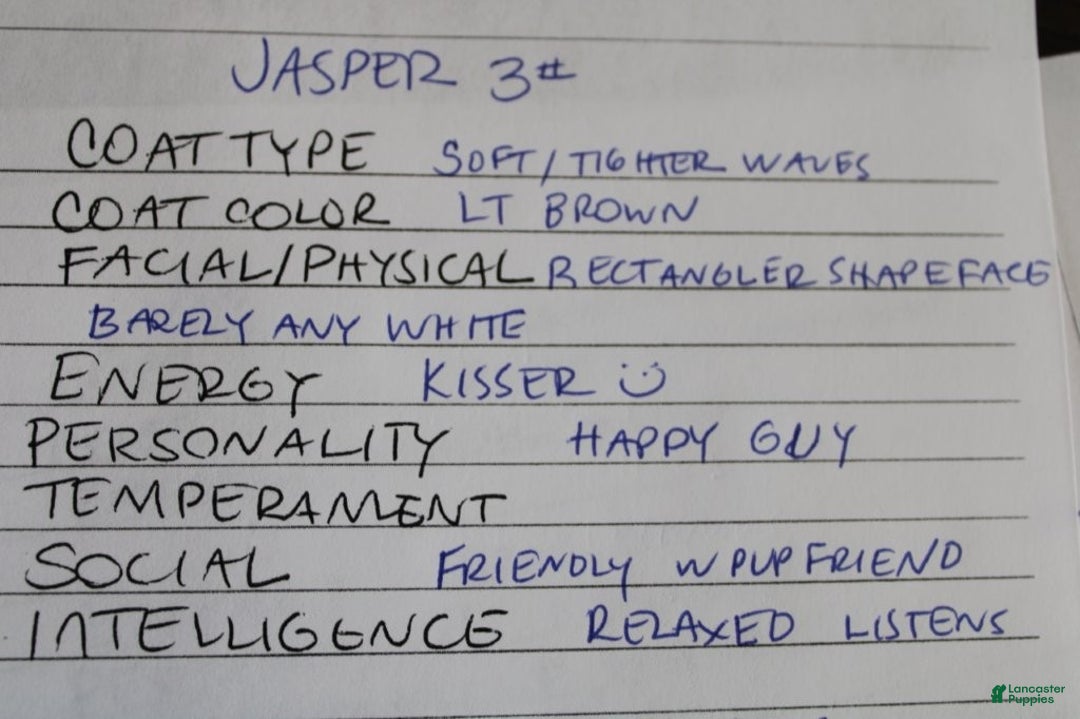 JASPER 3#
COAT TYPE SOFT/TIGHTER WAVES
COAT COLOR LT BROWN
FACIAL/PHYSICAL RECTANGLER SHAPE FACE
BARELY ANY WHITE
ENERGY KISSER :)
PERSONALITY HAPPY GUY
TEMPERAMENT
SOCIAL FRIENDLY W PUP FRIEND
INTELLIGENCE RELAXED LISTENS
Lancaster
Puppies